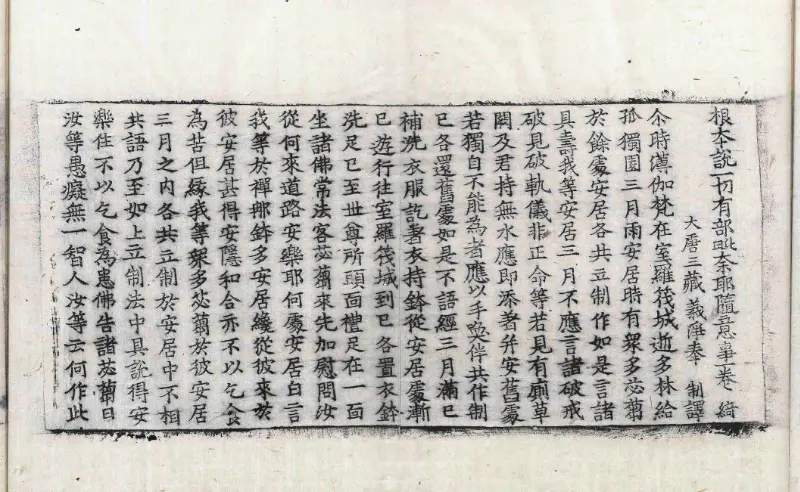 根本說一切有部毗奈耶隨意事卷 綺
大唐三藏義淨奉 制譯
尒時薄伽梵在室羅筏城逝多林給
孤獨園三月雨安居時有衆多苾蒭
於餘處安居各共立制作如是言諸
具壽我等安居三月不應言諸破戒
破見破軌儀非正命等若見有廁草
闕及君持無水應即添著并安舊處
若獨自不能為者應以手喚伴共作制
已各還舊處如是不語經三月滿已
補洗衣服訖著衣持鉢從安居處漸
已遊行往室羅筏城到已各置衣鉢
洗足已至世尊所頭面禮足在一面
坐諸佛常法客苾蒭來先加慰問汝
從何來道路安樂耶何處安居白言
我等於禪那鉢多安居纔從彼來於
彼安居甚得安隱和合亦不以乞食
為苦但緣我等衆多苾蒭於彼安居
三月之內各共立制於安居中不相
共語乃至如上立制法中具說得安
樂住不以乞食為患佛告諸苾蒭曰
汝等愚癡無一智人汝等云何作此